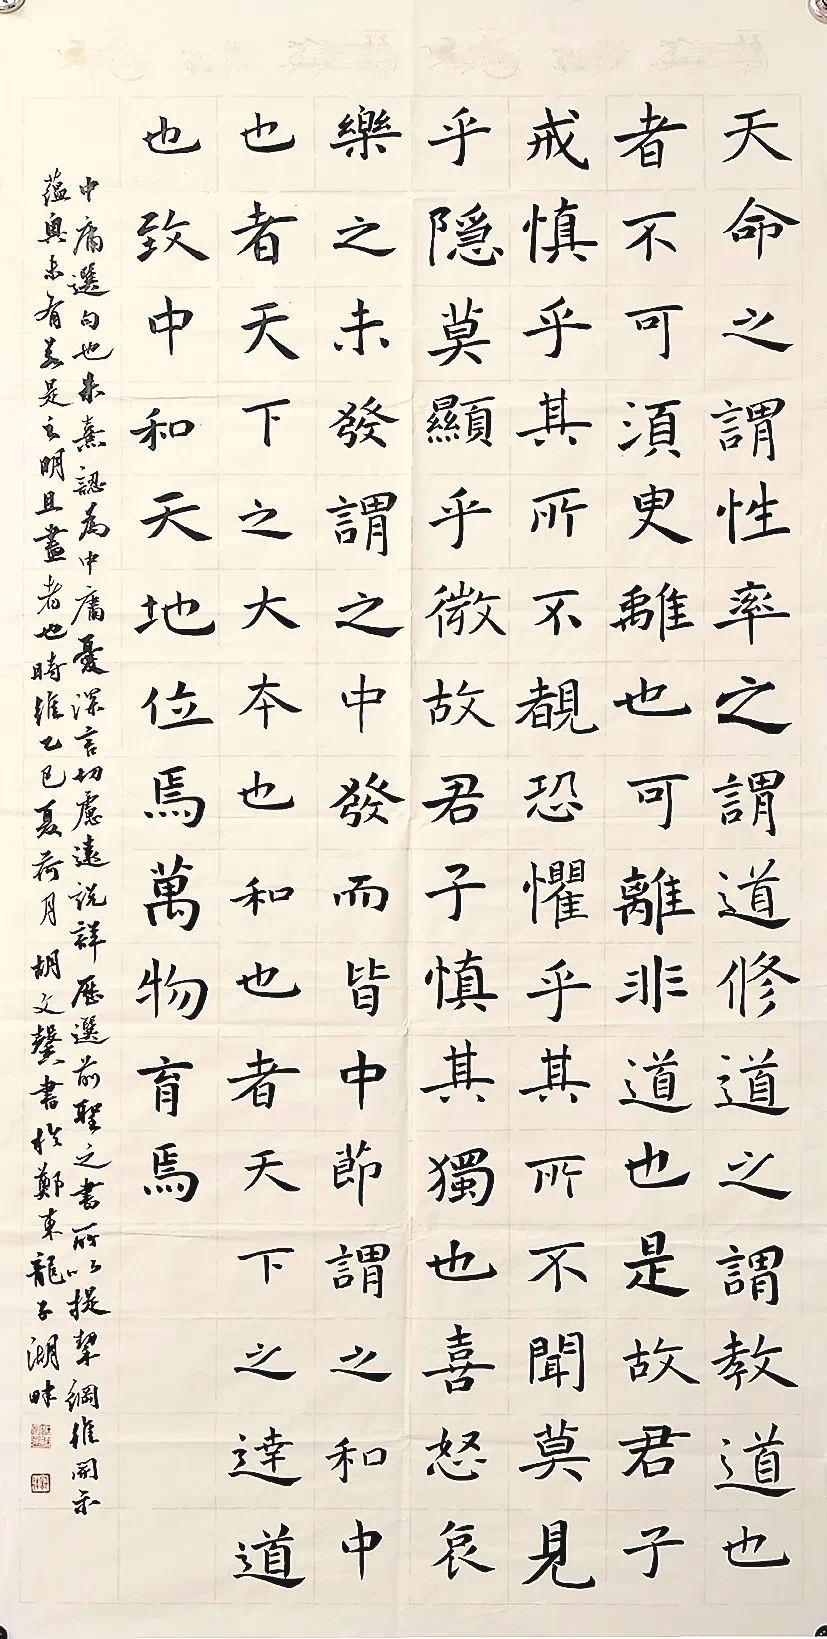 天命之謂性率之謂道修道之謂教道也
者不可須臾離也可離非道也是故君子
戒慎乎其所不覩恐懼乎其所不聞莫見
乎隱莫顯乎微故君子慎其獨也喜怒哀
樂之未發謂之中發而皆中節謂之和中
也者天下之大本也和也者天下之達道
也致中和天地位焉萬物育焉
中庸選句也朱熹認為中庸憂深言切慮遠說詳歷選前聖之書所以提挈綱維開示
蘊奧未有若是之明且盡者也時維乙巳夏荷月胡文書於鄭東龍子湖畔